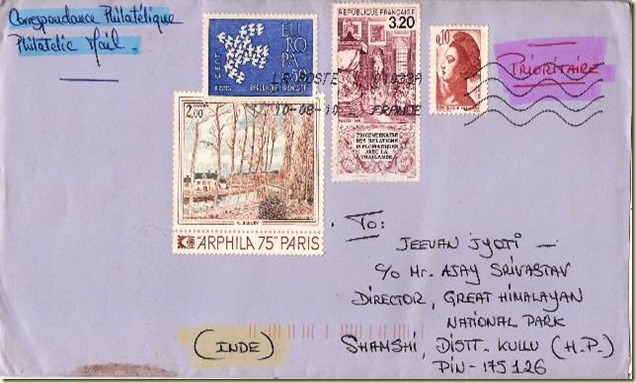 Correspondance Philatélique
Philatelic Mail.
C.E.P.T.
EUROPA
RÉPUBLIQUE FRANÇAISE
RÉPUBLIQUE FRANÇAISE
3,20
TRICENTENAIRE
DES RELATIONS
DIPLOMATIQUES
AVEC LA
THAILANDE
0,10
PRIORITAIRE
LA POSTE
10-08-10 FRANCE
2,00
A. SISLEY
ARPHILA 75 PARIS
To:
JEEVAN JYOTI —
c/o Mr. AJAY SRIVASTAV
DIRECTOR, GREAT HIMALAYAN
NATIONAL PARK
SHAMSHI, DISTT. KULLU (H.P.)
PIN-175126
(INDE)